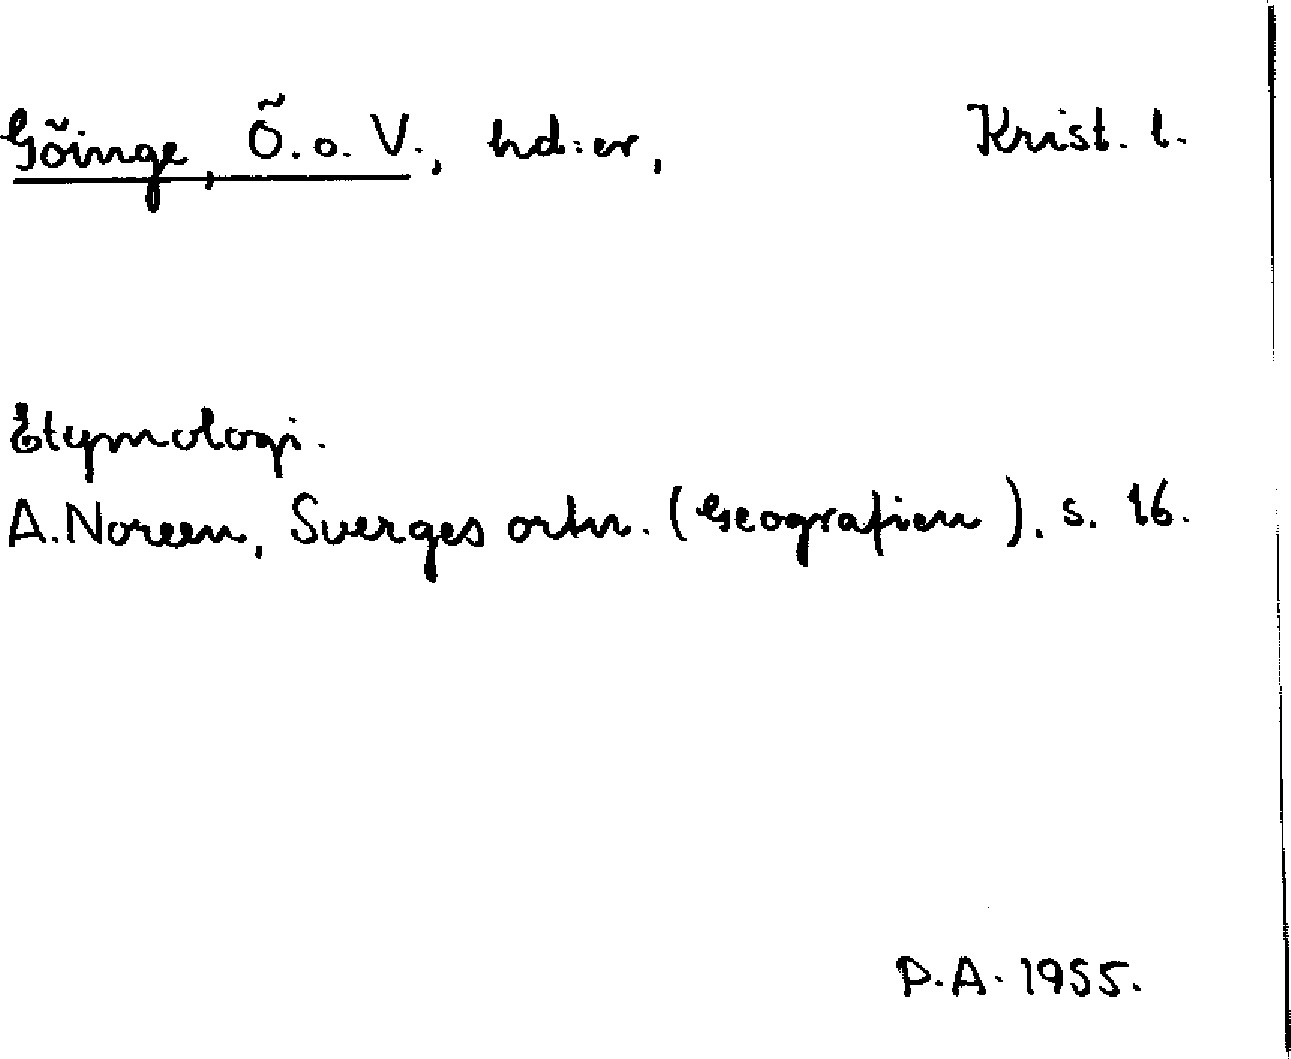 Göinge, Ö. o. V., hd:er, Krist. l.
Etymologi.
A. Noreen, Sverges ortn. (Geografien). s. 16.
P.A. 1955.